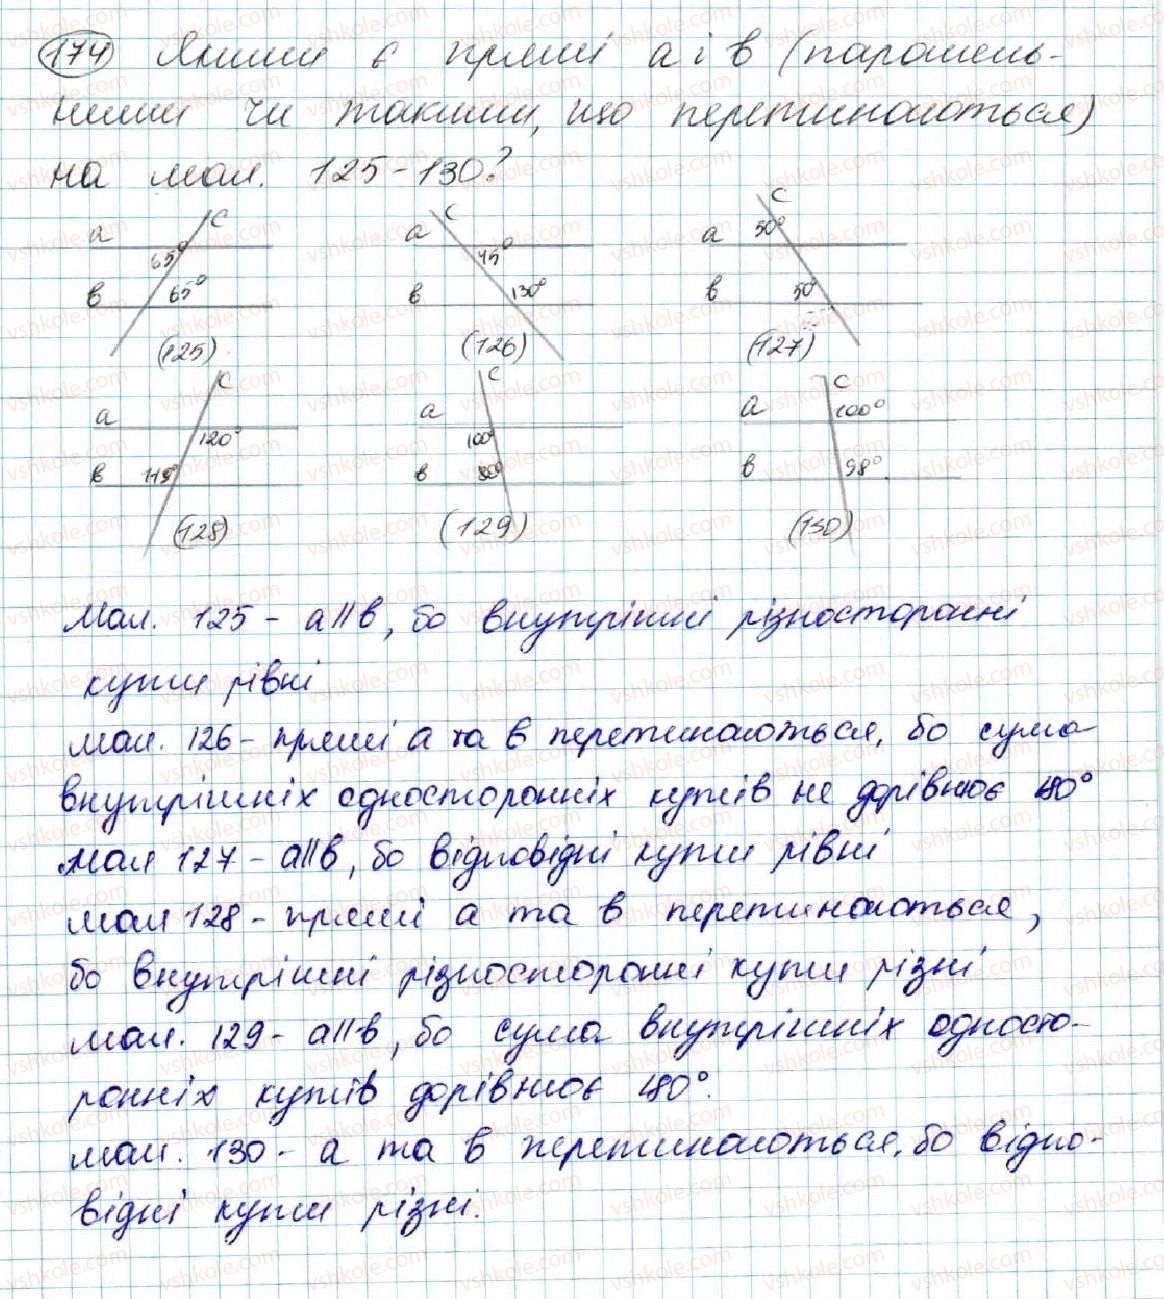 174 Якими є прямі а і в (паралель-
ними чи такими, що перетинаються)
на мал. 125-130?
а 65° с
в 65°
(125)
а с 45°
в 130°
(126)
а 50° с
в 50°
(127)
а с 120°
в 119°
(128)
а с 100°
в 80°
(129)
а с 100°
в 98°
(130)
Мал. 125 - а||в, бо внутрішні різносторонні
кути рівні
мал. 126 - прямі а та в перетинаються, бо сума
внутрішніх односторонніх кутів не дорівнює 180°
Мал 127 - а||в, бо відповідні кути рівні
мал 128 - прямі а та в перетинаються,
бо внутрішні різносторонні кути різні
мал. 129 - а||в, бо сума внутрішніх односто-
ронніх кутів дорівнює 180°.
мал. 130 - а та в перетинаються, бо відпо-
відні кути різні.
vshkole.com